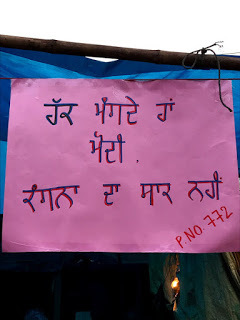 ਹੱਕ ਮੰਗਦੇ ਹਾਂ
ਮੋਦੀ .
ਕੰਗਨਾ ਦਾ ਸਾਕ ਨਹੀਂ
P.NO. 772